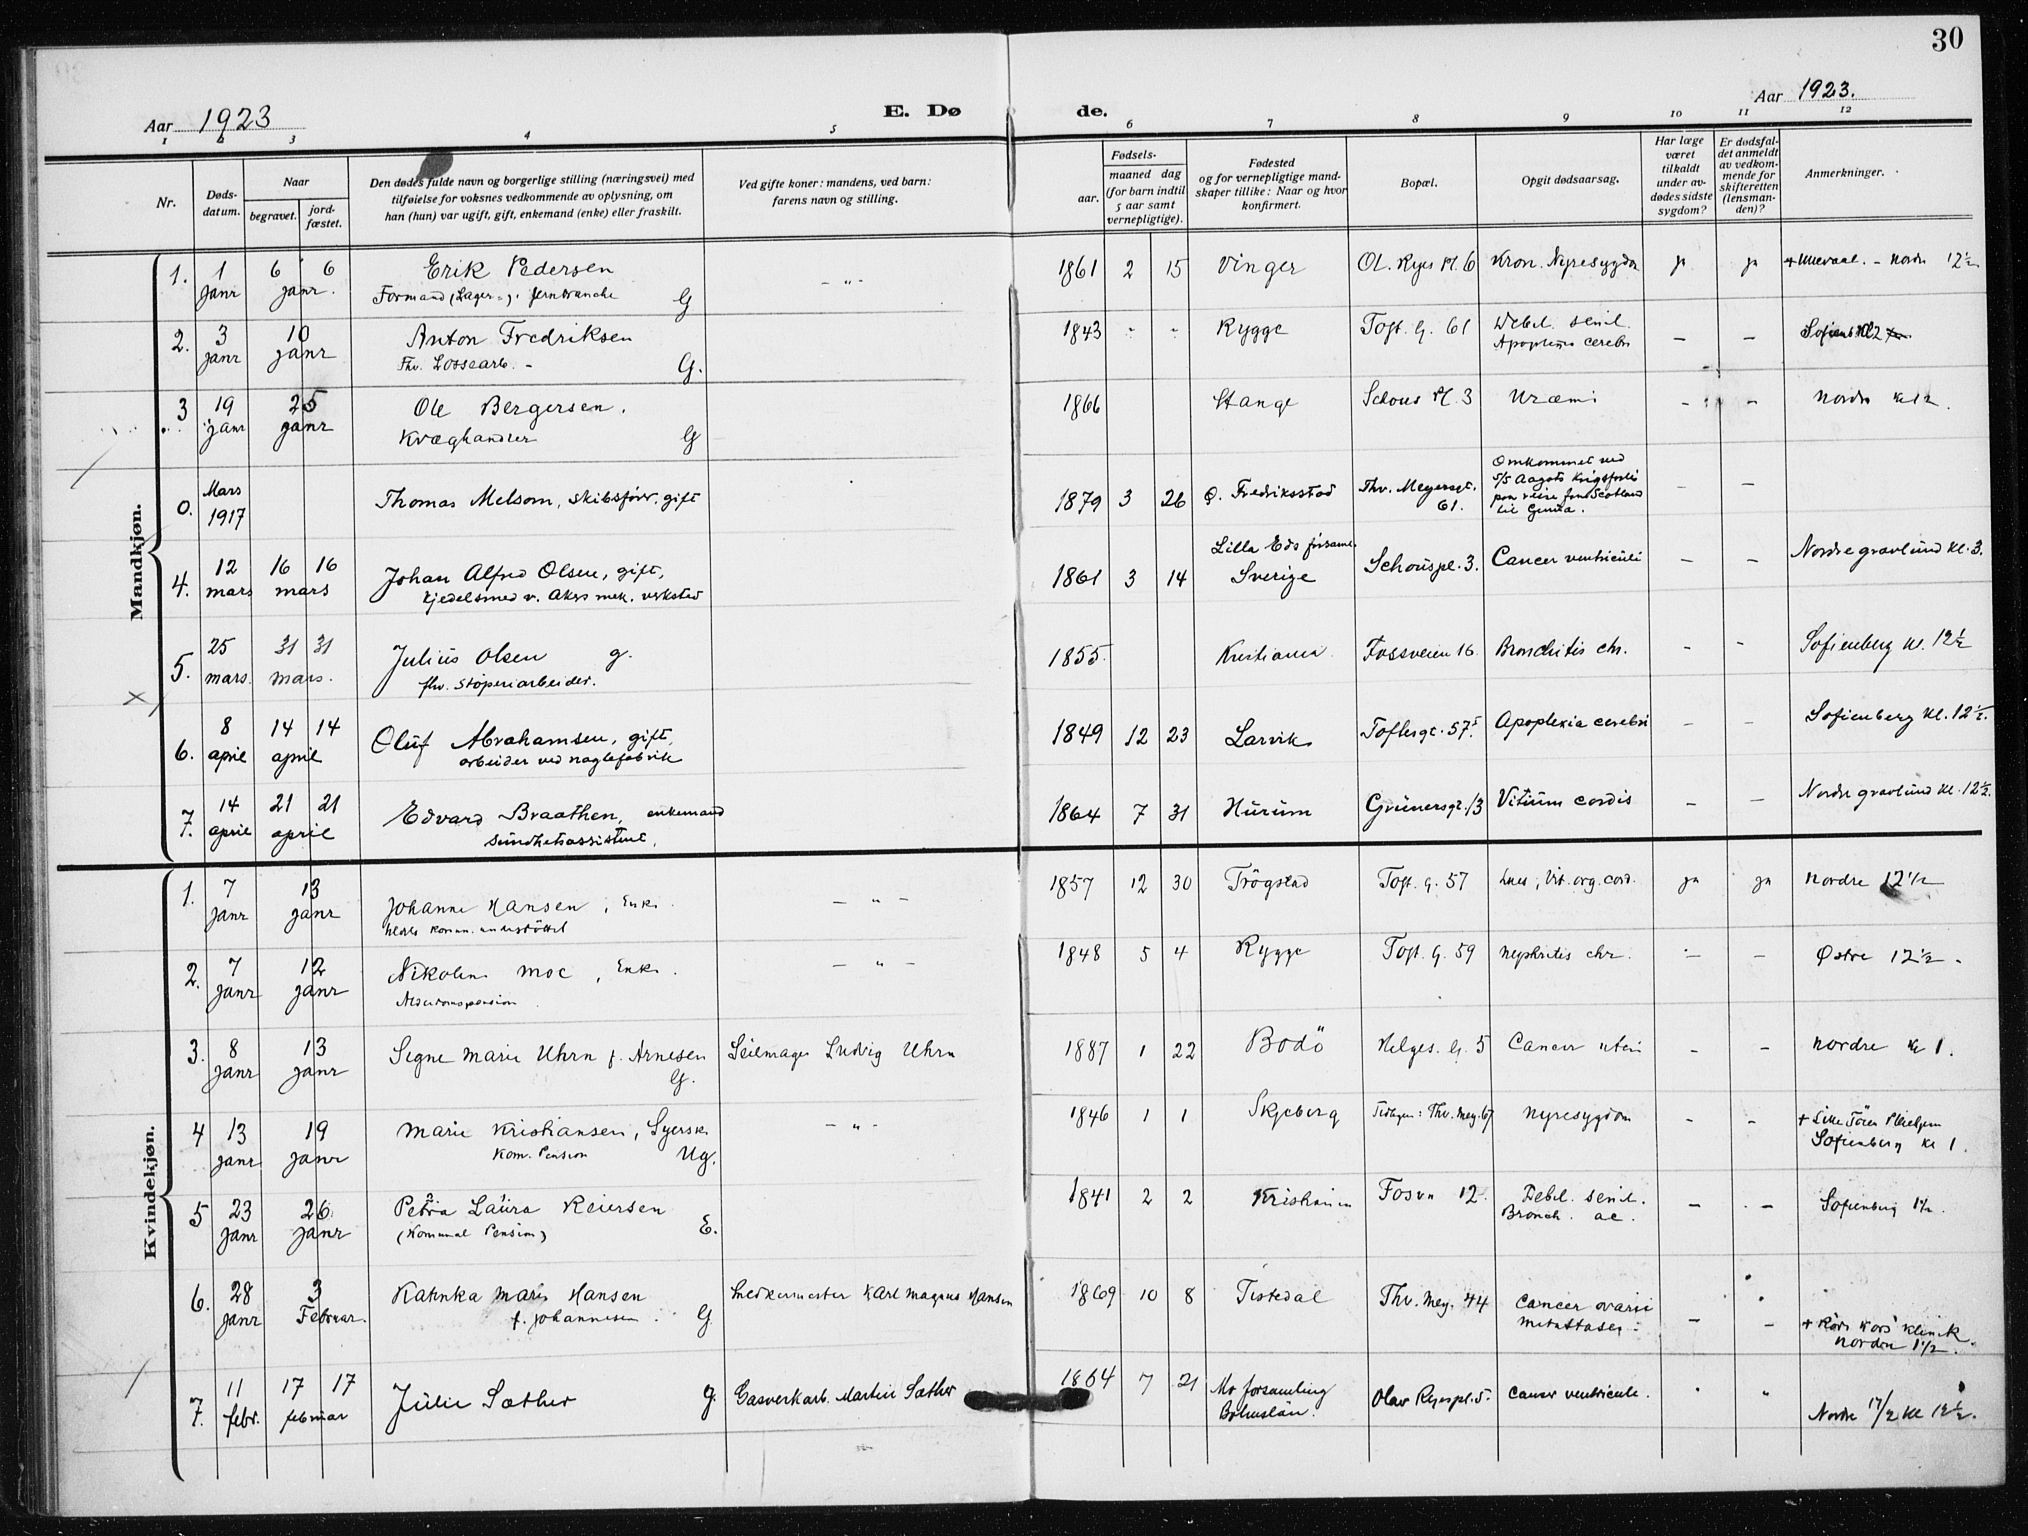 30
Aar 1923
E. Dø
de.
Aar 1923.
1 2 3 4 5 6 7 8 9 10 11 12
Nr.
Døds-
datum.
Naar
begravet.
jord-
fæstet.
Den dødes fulde navn og borgerlige stilling (næringsvei) med
tilføielse for voksnes vedkommende av oplysning, om
han (hun) var ugift, gift, enkemand (enke) eller fraskilt.
Ved gifte koner: mandens, ved barn:
farens navn og stilling.
Fødsels-
aar.
maaned dag
(for barn indtil
5 aar samt
vernepligtige).
Fødested
og for vernepligtige mand-
skaper tillike: Naar og hvor
konfirmert.
Bopæl.
Opgit dødsaarsag.
Har læge
været
tilkaldt
under av-
dødes sidste
sygdom?
Er dødsfal-
det anmeldt
av vedkom-
mende for
skifteretten
(lensman-
den)?
Anmerkninger.
Mandkjøn.
1. 1 6 6 Erik Pedersen - " - 1861 2 15 Vinger Ol. Ryes Pl. 6 Kron. Nyresygdom ja ja + Ullevaal. - Nordre 12½
janr janr. Formand (Lager-), jernbranche G
2. 3 10 Anton Fredriksen 1843 - - Rygge Toft. G. 61 Debil. senil. - -
janr janr Fhv. Lossearb. - G. Apoplexia cerebri
3 19 25 Ole Bergersen. 1866 Stange Schous Pl. 3 Uræmi - - Nordre
janr janr Kvæghandler G
0. Mars Thomas Melsom, skibsfører, gift 1879 3 26 Ø. Fredriksstad Thv. Meyersgt. Omkommet ved - -
1917 61. S/S Aagots Krigsforlis
paa reise fra Scotland
til Genua.
4. 12 16 16 Johan Alfred Olsen, gift, 1861 3 14 Lilla Eds församl. Schouspl. 3. Cancer ventriculi - - Nordre gravlund kl. 3.
mars mars kjedelsmed v. Akers mek. verksted Sverige
5. 25 31 31 Julius Olsen g. 1855. Kristiania. Fossveien 16. Bronchitis chr. - - Sofienberg kl. 12½
mars. mars. fhv. støperiarbeider.
6. 8 14 14 Oluf Abrahamsen, gift, 1849 12 23 Larvik Toftesgt. 57 I. Apoplexia cerebri - - Sofienberg kl. 12½.
april april arbeider ved naglefabrik
7. 14 21 21 Edvard Braathen, enkemand 1864 7 31 Hurum Grünersgt. 13 Vitium cordis - - Nordre gravlund kl. 12½.
april april sundhetsassistent.
Kvindekjøn.
1. 7 13 Johanne Hansen, Enke. - " - 1857 12 30 Trögstad Toft. G. 57 Lues, Vit. org. cord. ja ja Nordre 12½
janr janr
2. 7 12 Nikoline Moe, Enke. - " - 1848 5 4 Rygge Toft. G. 59 Nephritis chr. - - Østre 12½.
janr janr Alderdomspension
3. 8 13 Signe Marie Uhrn f. Arnesen Seilmager Ludvig Uhrn 1887 1 22 Bodö Helges. G. 5 Cancer uteri - - Nordre kl 1.
janr janr G.
4 13 19 Marie Kristiansen, Syersk. - " - 1846 1 1 Skjeberg Tidligere: Thv. Mey. 67 Nyresygdom - -
janr janr Kom. Pension Ug. Sofienberg kl 1.
5 23 26 Petra Laura Reiersen 1841 2 2 Kristiania Fosvn 12. Debil. senil. - - Sofienberg 1½.
janr janr (Komunal Pension) E. Bronch. ac.
6. 28 3 Kathinka Marie Hansen Snedkermester Karl Magnus Hansen 1869 10 8 Tistedal Thv. Mey. 44 Cancer ovarii - - + Røde Kors Klinik
janr Februar. f. Johannesen. G. metastaser. Nordre 1½.
7. 11 17 17 Julie Sæther g. Gasverkarb. Martin Sæther 1864 7 21 Mo forsamling Olav Ryespl. 5. Cancer ventriculi. " Nordre 17/2 kl 12½.
febr. februar Bohuslän.